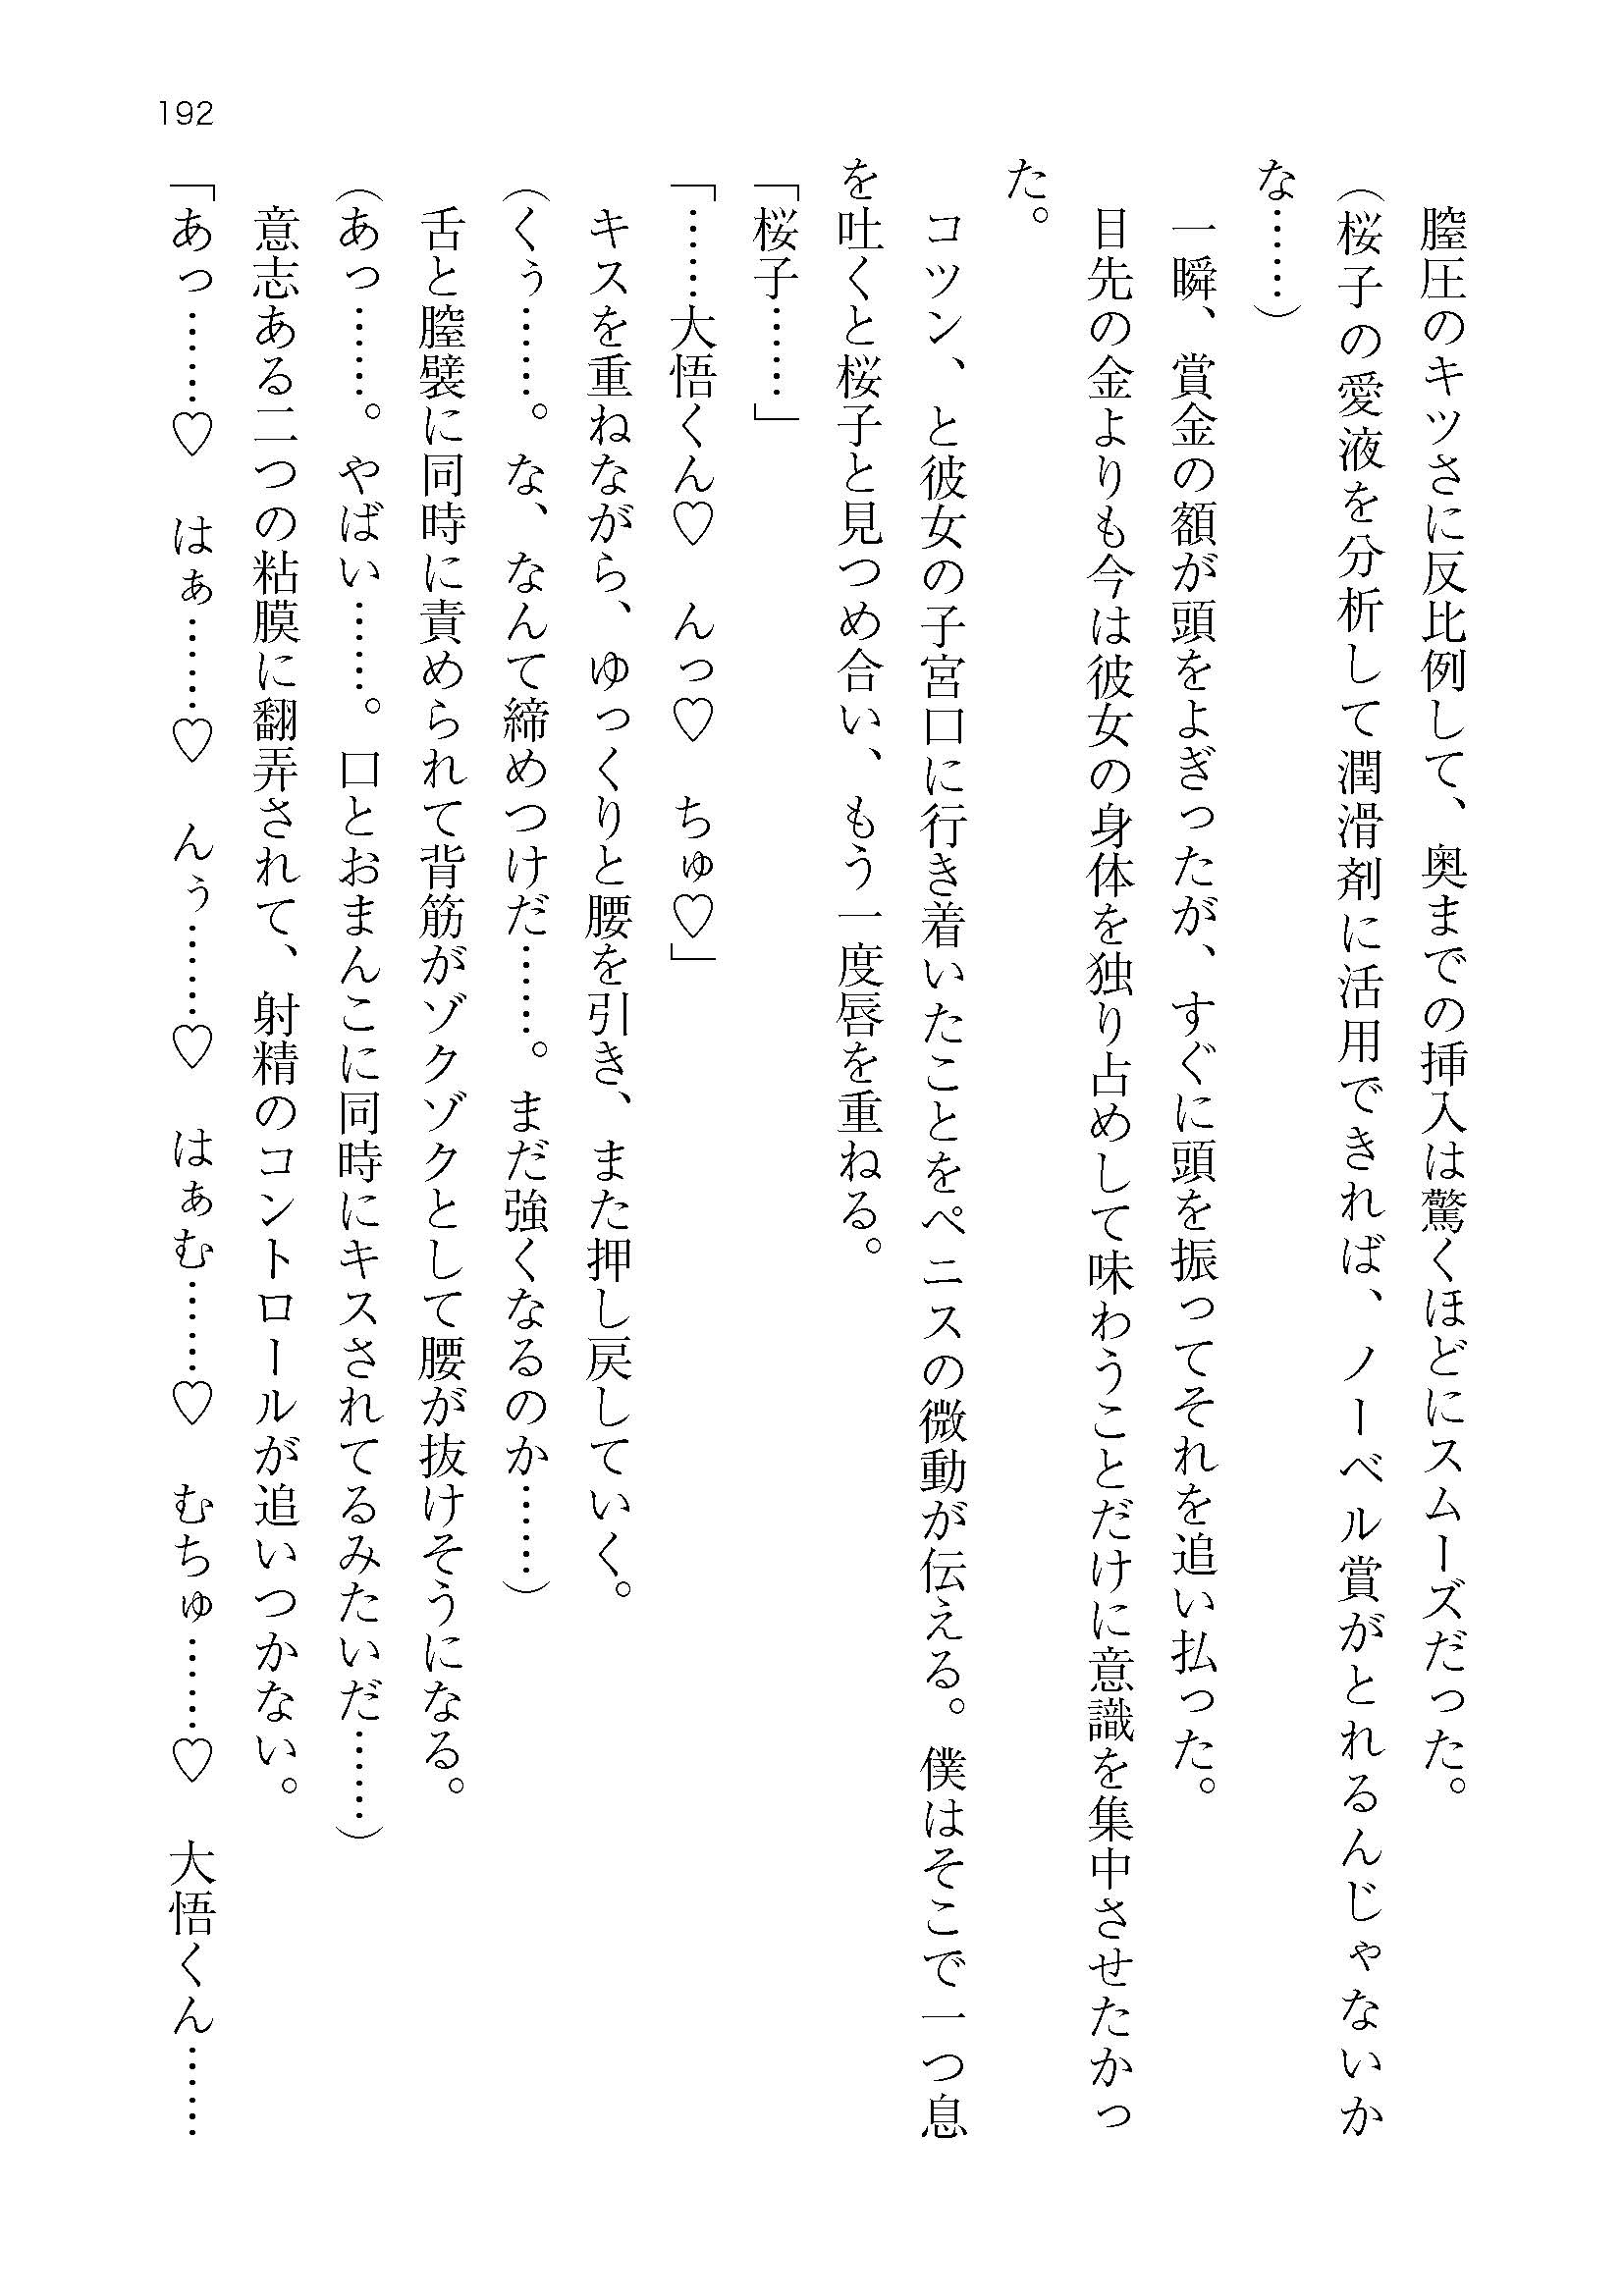 192
膣圧のキツさに反比例して、奥までの挿入は驚くほどにスムーズだった。
（桜子の愛液を分析して潤滑剤に活用できれば、ノーベル賞がとれるんじゃないか
な……）
一瞬、賞金の額が頭をよぎったが、すぐに頭を振ってそれを追い払った。
目先の金よりも今は彼女の身体を独り占めして味わうことだけに意識を集中させたかっ
た。
コツン、と彼女の子宮口に行き着いたことをペニスの微動が伝える。僕はそこで一つ息
を吐くと桜子と見つめ合い、もう一度唇を重ねる。
「桜子……」
「……大悟くん♡　んっ♡　ちゅ♡」
キスを重ねながら、ゆっくりと腰を引き、また押し戻していく。
（くぅ……。な、なんて締めつけだ……。まだ強くなるのか……）
舌と膣襞に同時に責められて背筋がゾクゾクとして腰が抜けそうになる。
（あっ……。やばい……。口とおまんこに同時にキスされてるみたいだ……）
意志ある二つの粘膜に翻弄されて、射精のコントロールが追いつかない。
「あっ……♡　はぁ……♡　んぅ……♡　はぁむ……♡　むちゅ……♡　大悟くん……